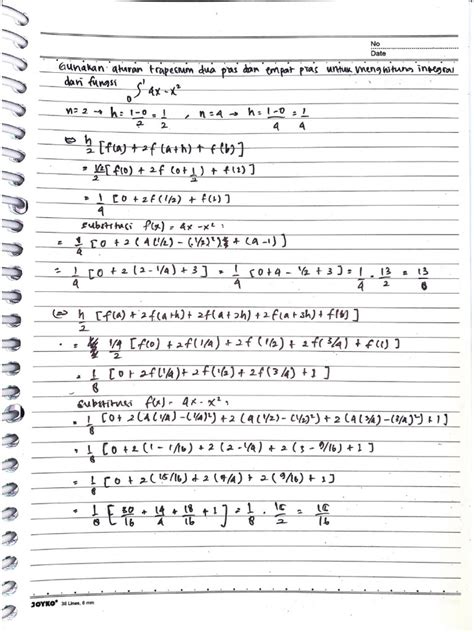 No
Date
Gunakan aturan trapesium dua pias dan empat pias untuk menghitung integral
dari fungsi ₀∫¹ 4x - x²
n=2 → h = 1-0/2 = 1/2 , n=4 → h = 1-0/4 = 1/4
⇔ h/2 [f(a) + 2f(a+h) + f(b)]
= 1/2/2 [f(0) + 2f(0+1/2) + f(1)]
= 1/4 [0 + 2f(1/2) + f(1)]
Substitusi f(x) = 4x - x² :
= 1/4 [0 + 2(4(1/2) - (1/2)²) + (4-1)]
= 1/4 [0 + 2(2 - 1/4) + 3] = 1/4 [0 + 4 - 1/2 + 3] = 1/4 . 13/2 = 13/8
⇔ h/2 [f(a) + 2f(a+h) + 2f(a+2h) + 2f(a+3h) + f(b)]
= 1/4/2 [f(0) + 2f(1/4) + 2f(1/2) + 2f(3/4) + f(1)]
= 1/8 [0 + 2f(1/4) + 2f(1/2) + 2f(3/4) + 1]
Substitusi f(x) = 4x - x² :
= 1/8 [0 + 2(4(1/4) - (1/4)²) + 2(4(1/2) - (1/2)²) + 2(4(3/4) - (3/4)²) + 1]
= 1/8 [0 + 2(1 - 1/16) + 2(2 - 1/4) + 2(3 - 9/16) + 1]
= 1/8 [0 + 2(15/16) + 2(7/4) + 2(9/16) + 1]
= 1/8 [30/16 + 14/4 + 18/16 + 1] = 1/8 . 15/2 = 15/16
JOYKO® 30 Lines, 8 mm